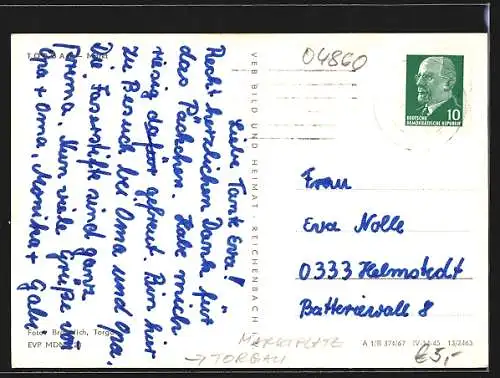 TORGAU - Markt
Liebe Tante Eva!
Recht herzlichen Dank für
das Päckchen. Habe mich
riesig dafür gefreut. Bin hier
zu Besuch bei Oma und Opa.
Die Faserstifte sind ganz
prima. Nun viele Grüße von
Opa + Oma, Monika + Gaby
Foto: Torgau
EVP MDN
VEB BILD UND HEIMAT · REICHENBACH I.
04860
DEUTSCHE
DEMOKRATISCHE REPUBLIK
10
Frau
Eva Nolle
0333 Helmstedt
Batteriewall 8
A 1/B 374/67 IV-14-45 13/2463
MARKTPLATZ
→ TORGAU
€5,-